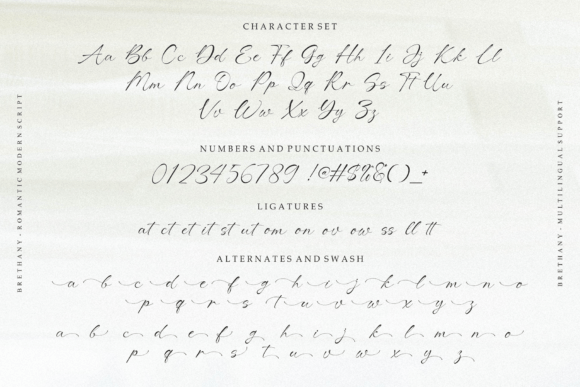 CHARACTER SET
Aa Bb Cc Dd Ee Ff Gg Hh Ii Jj Kk Ll
Mm Nn Oo Pp Qq Rr Ss Tt Uu
Vv Ww Xx Yy Zz
BRETHANY - ROMANTIC MODERN SCRIPT
BRETHANY - MULTILINGUAL SUPPORT
NUMBERS AND PUNCTUATIONS
0123456789 !@#$%&()_+
LIGATURES
at ct et it st ut om on ov ow ss ll tt
ALTERNATES AND SWASH
a b c d e f g h i j k l m n o
p q r s t u v w x y z
a b c d e f g h i j k l m n o
p q r s t u v w x y z